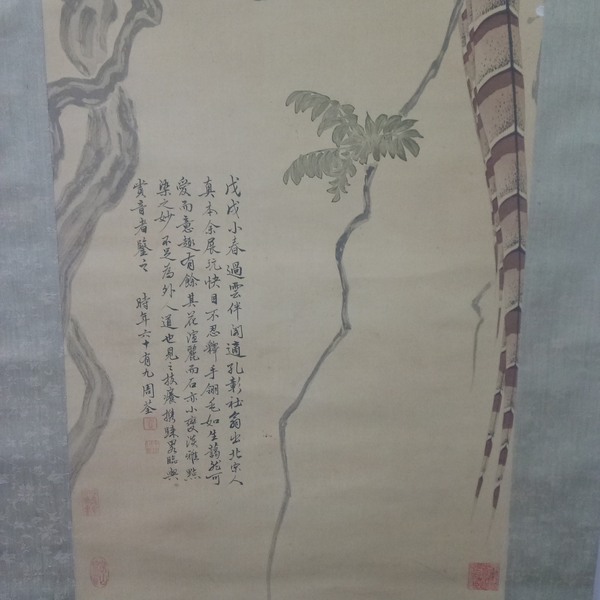 戊戌小春過雲伴閣適孔彰社翁出北宋人
真本余展玩快目不忍釋手翎毛如生藹然可
愛而意趣有餘其花渲麗而石亦小變淡雅點
染之妙不足為外人道也見之技癢携歸畧臨與
賞音者鑒之 時年六十有九周荃